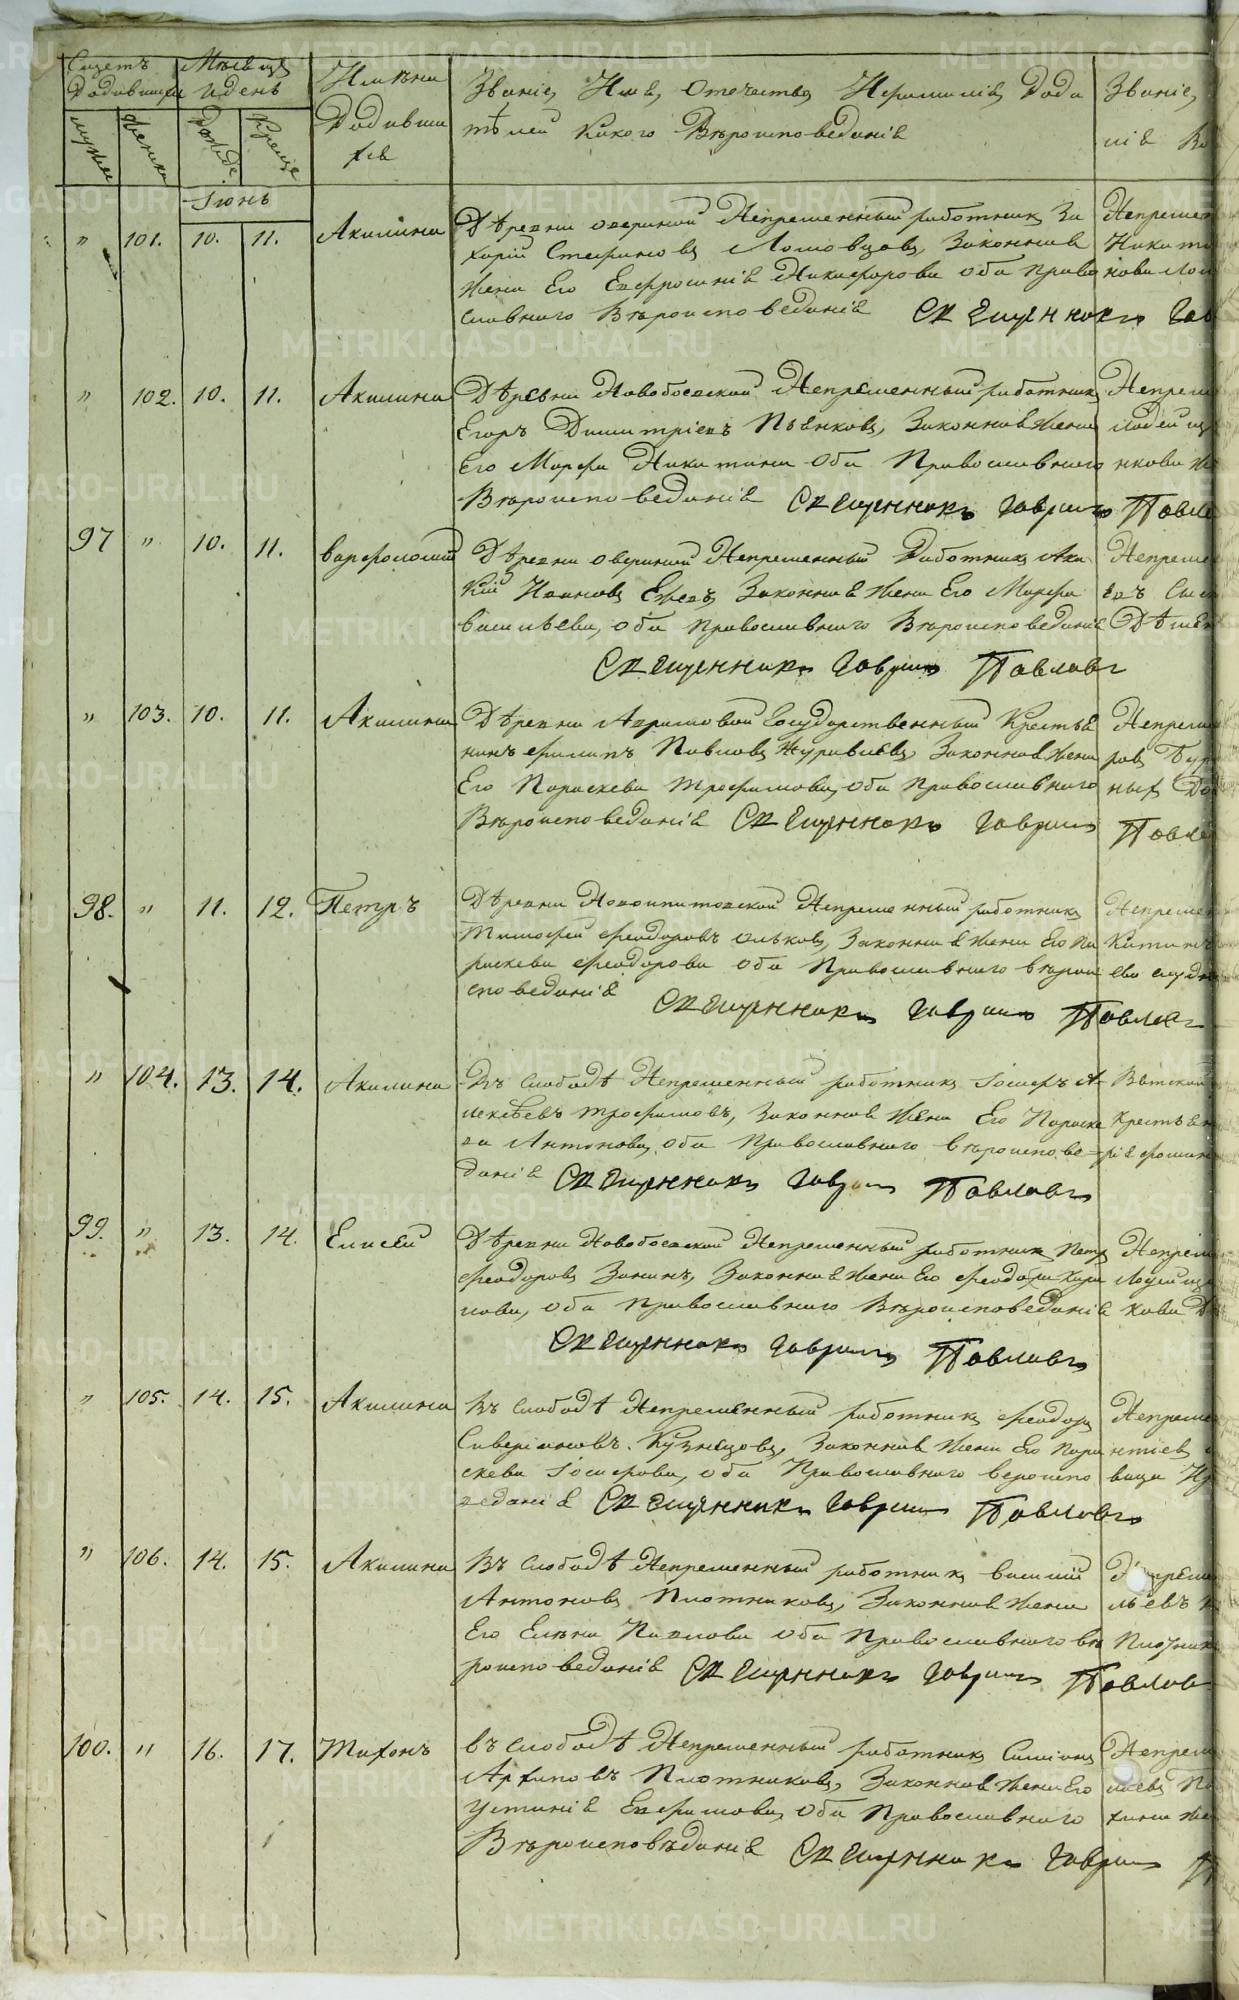 Счетъ Родившихся
Мѣсяцъ и день
Имѣна Родившихся
Званіе, Имя, Отечество, И фамилія, Роди
телей Какого Вѣроисповеданія
Званіе,
мужеска
женска
Рожде.
Креще
Іюнь
" 101. 10. 11. Акилина
Дѣревни Непременный работникъ За
харій Стефановъ Ломовцовъ, Законная
жена Его Евфросинія Никифорова оба право
славного Вѣроисповеданія Священникъ
Непремен
Никити
нова Лом
" 102. 10. 11. Акилина
Дѣревни Новобоевской Непременный работникъ
Егоръ Димитріевъ Пьянковъ, Законная жена
Его Марфа Никитина оба Православного
Вѣроисповеданія Священникъ Гавриилъ Павло
Непреме
нкова
97 " 10. 11. Варфоломей
Дѣревни Овериной Непременный Работникъ Ака
кій Ивановъ Ежевъ Законная жена Его Марфа
Васильева, оба православного Вѣроисповеданія
Священникъ Гавриилъ Павловъ
Непреме
" 103. 10. 11. Акилина
Дѣревни Государственный Крестья
нинъ Филипъ Павловъ Журавлевъ, Законная жена
Его Параскева Трофимова, оба православного
Вѣроисповеданія Священникъ Гавриилъ Павло
Непреме
ровъ
ныхъ
98. " 11. 12. Петръ
Дѣревни Новоипатовской Непременный работникъ
Тимофей Феодоровъ Ольковъ, Законная жена Его Па
раскева Феодорова оба Православного вѣрои
споведанія Священникъ Гавриилъ Павловъ
Непремен
" 104. 13. 14. Акилина
Въ Слободѣ Непременный работникъ Іосифъ А-
лексѣевъ Трофимовъ, Законная жена Его Параске
ва Антонова, оба Православного вѣроиспове=
данія Священникъ Гавриилъ Павловъ
Вятской
крестьян
99. " 13. 14. Елисей
Дѣревни Новобоевской Непременный работникъ Петръ
Феодоровъ Занинъ, Законная жена Его Феодора Хари
нова, оба православного Вѣроисповеданія
Священникъ Гавриилъ Павловъ
Непреме
кова
" 105. 14. 15. Акилина
Въ Слободѣ Непременный работникъ Феодоръ
Саверіановъ Кузнецовъ, Законная жена Его Пара
скева Іосифова, оба Православного вероиспо
веданія Священникъ Гавриилъ Павловъ
Непреме
нтіевъ
вица
" 106. 14. 15. Акилина
Въ Слободѣ Непременный работникъ Василій
Антоновъ Плотниковъ, Законная жена
Его Елена Павлова оба Православного вѣ
роисповеданія Священникъ Гавриилъ Павлов
Непреме
льевъ
Плотник
100. " 16. 17. Тихонъ
Въ Слободѣ Непременный работникъ Симіонъ
Архиповъ Плотниковъ, Законная жена Его
Устинія Евфимова, оба Православного
Вѣроисповѣданія Священникъ Гавриилъ
Непреме
METRIKI.GASO-URAL.RU